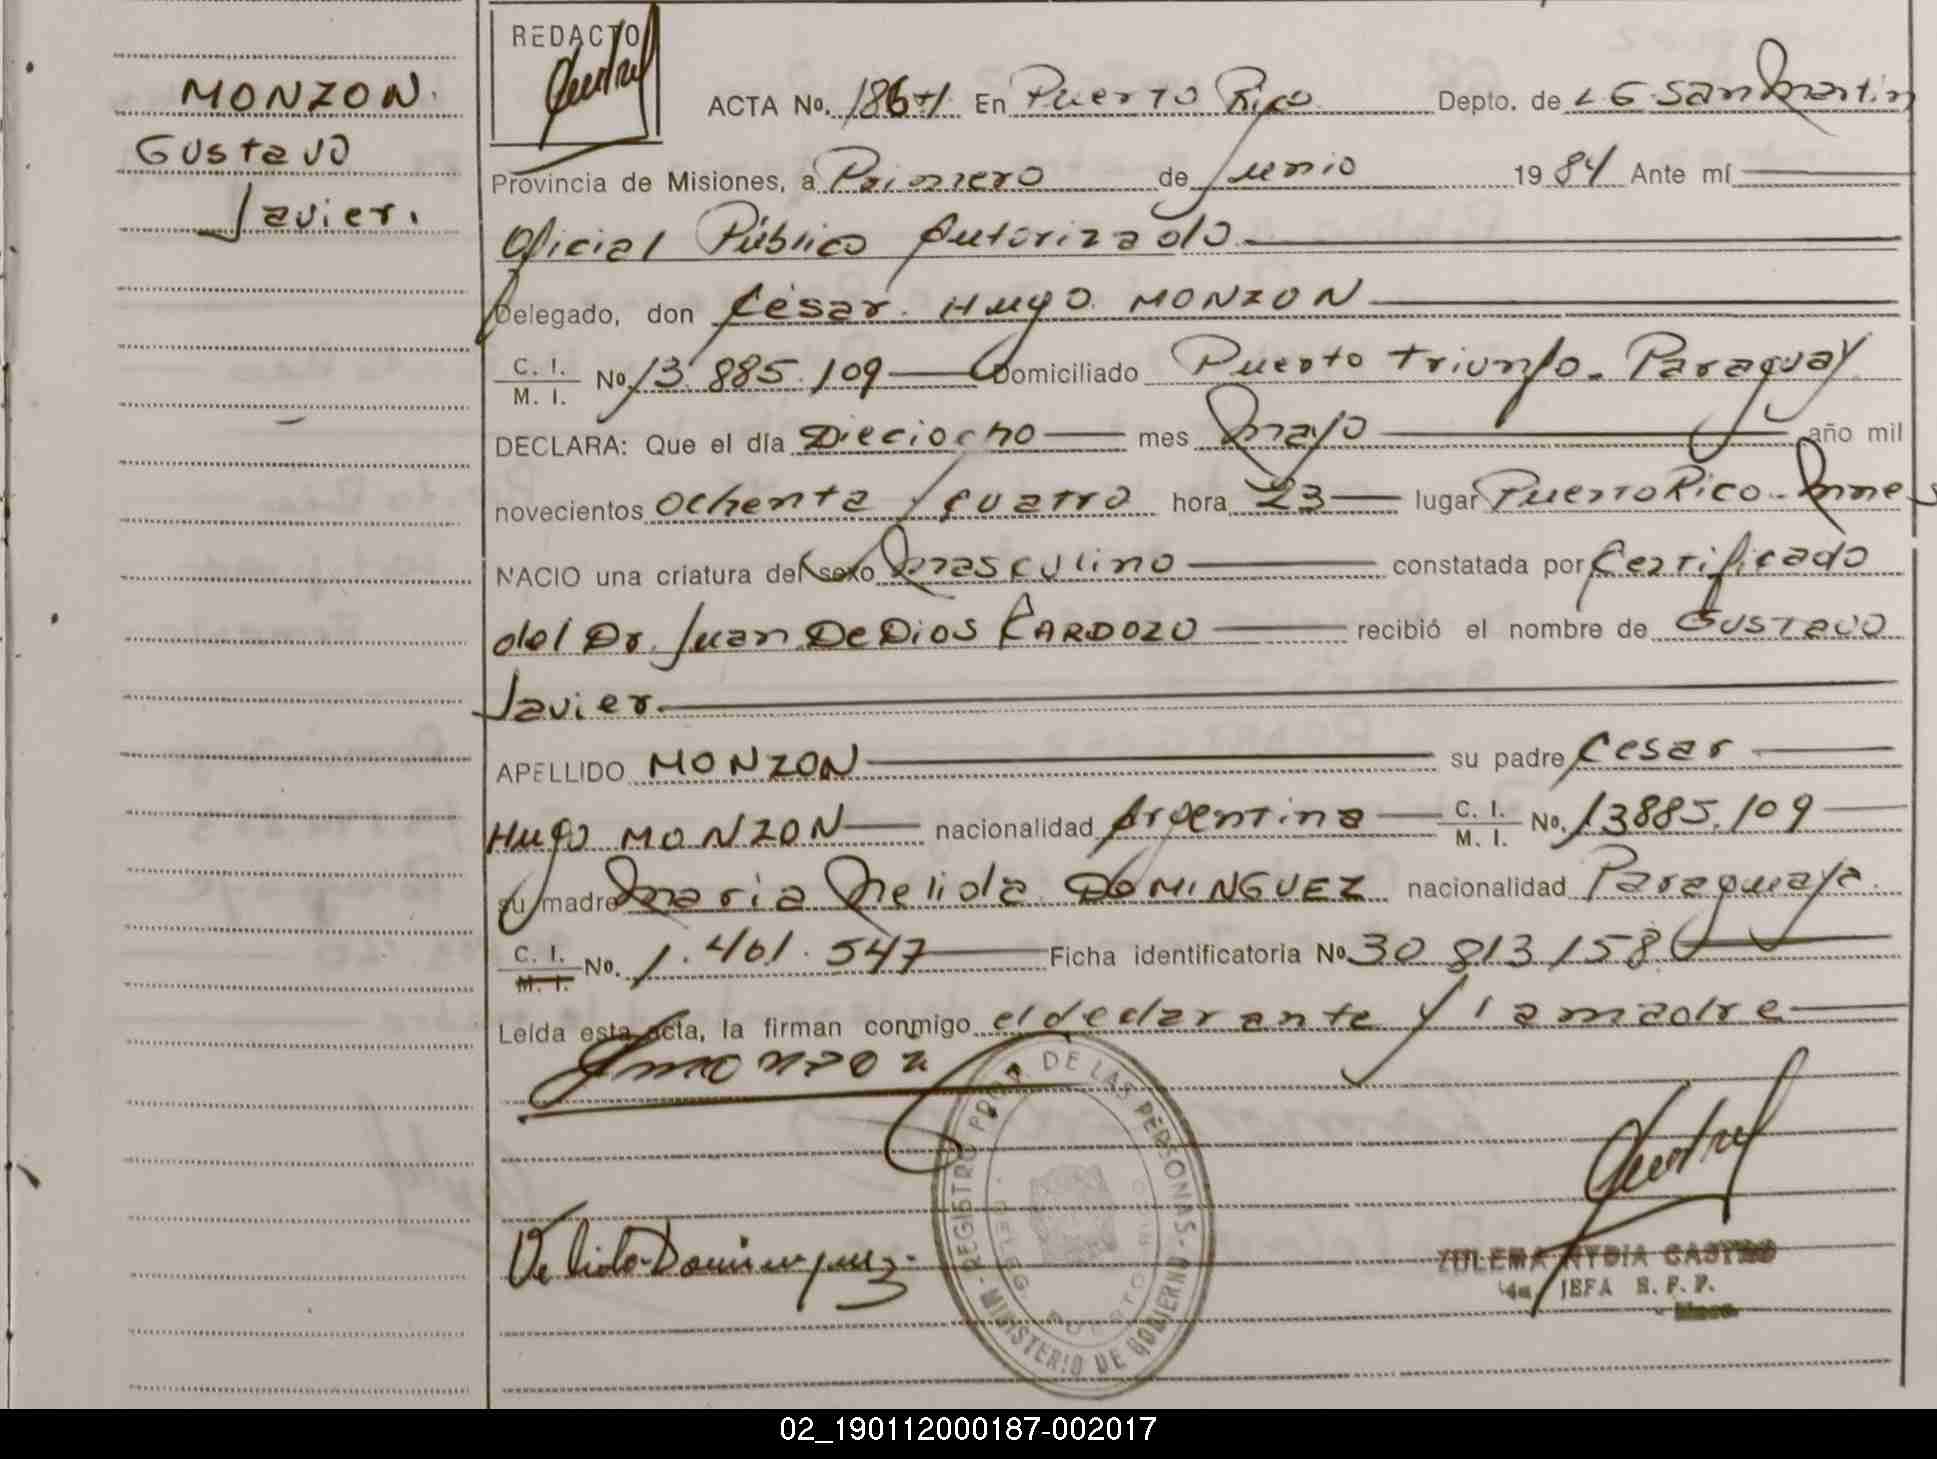 MONZON.
Gustavo
Javier.
REDACTO
ACTA No. En Puerto Rico Depto. de L G San Martin
Provincia de Misiones, a Primero de Junio 1984 Ante mí
Oficial Público Autorizado
Delegado, don César Hugo MONZON
C. I.
M. I. No. 13.885.109 Domiciliado Puerto Triunfo - Paraguay
DECLARA: Que el día Dieciocho mes mayo año mil
novecientos ochenta y cuatro hora 23 lugar Puerto Rico - Mnes
NACIO una criatura del sexo masculino constatada por Certificado
del Dr. Juan De Dios CARDOZO recibió el nombre de Gustavo
Javier.
APELLIDO MONZON su padre Cesar
Hugo MONZON nacionalidad Argentina C. I. M. I. No. 13885.109
su madre Maria Nelida DOMINGUEZ nacionalidad Paraguaya
C. I. M. I. No. 1.401.547 Ficha identificatoria No 30 813 158
Leída esta acta, la firman conmigo el declarante y la madre
Monzon
REGISTRO PCIAL. DE LAS PERSONAS - MINISTERIO DE GOBIERNO
DELEG. PUERTO RICO
Nelida Dominguez
ZULEMA NYDIA CASTRO
JEFA R. P. P.
02_190112000187-002017